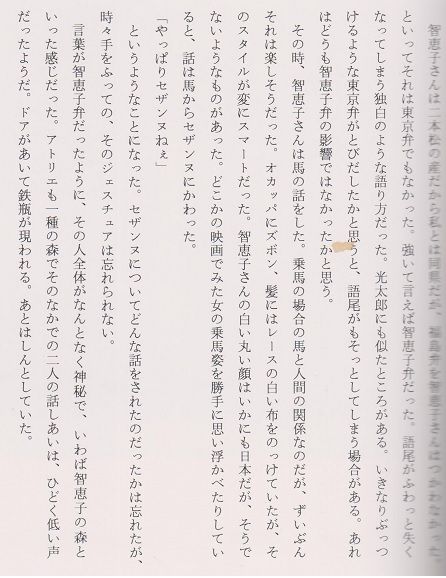 智恵子さんは二本松の産だから私とは同県だが、福島弁を智恵子さんはつかわなかった。
といってそれは東京弁でもなかった。強いて言えば智恵子弁だった。語尾がふわっと失く
なってしまう独白のような語り方だった。光太郎にも似たところがある。いきなりぶっつ
けるような東京弁がとびだしたかと思うと、語尾がもそっとしてしまう場合がある。あれ
はどうも智恵子弁の影響ではなかったかと思う。
その時、智恵子さんは馬の話をした。乗馬の場合の馬と人間の関係なのだが、ずいぶん
それは楽しそうだった。オカッパにズボン、髪にはレースの白い布をのっけていたが、そ
のスタイルが変にスマートだった。智恵子さんの白い丸い顔はいかにも日本だが、そうで
ないようなものがあった。どこかの映画でみた女の乗馬姿を勝手に思い浮かべたりしてい
ると、話は馬からセザンヌにかわった。
「やっぱりセザンヌねぇ」
というようなことになった。セザンヌについてどんな話をされたのだったかは忘れたが、
時々手をふっての、そのジェスチュアは忘れられない。
言葉が智恵子弁だったように、その人全体がなんとなく神秘で、いわば智恵子の森と
いった感じだった。アトリエも一種の森でそのなかでの二人の話しあいは、ひどく低い声
だったようだ。ドアがあいて鉄瓶が現われる。あとはしんとしていた。